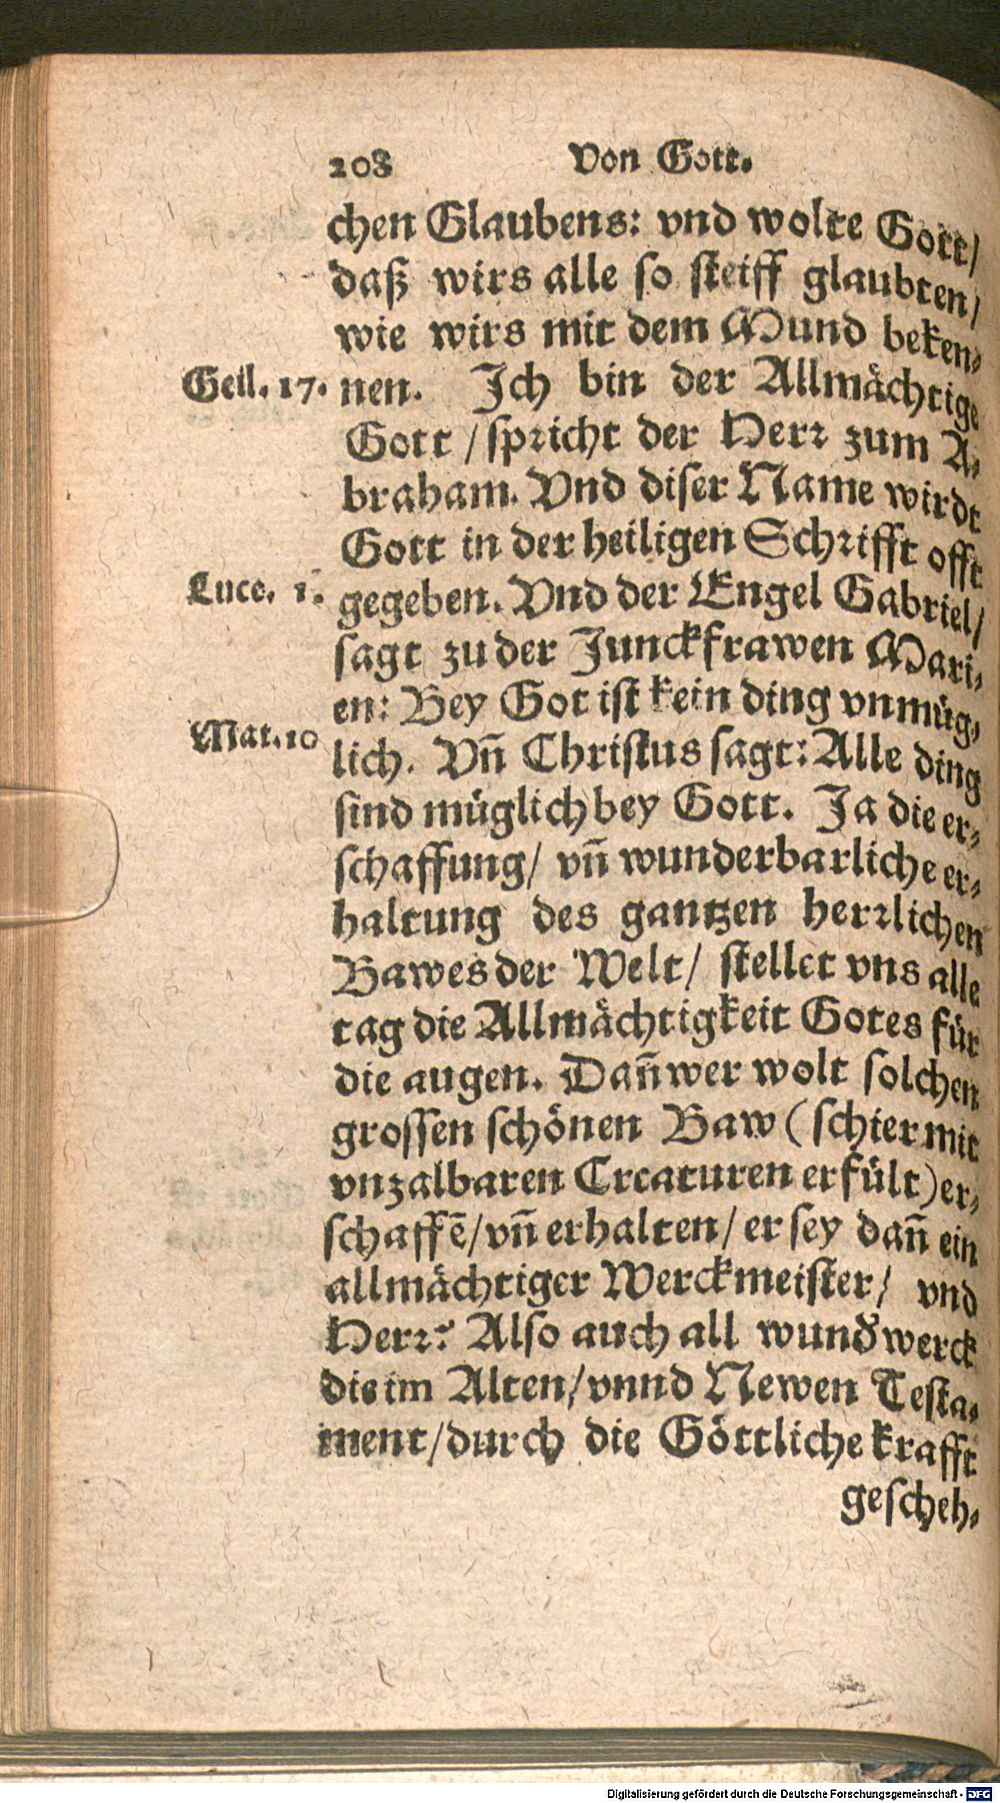 208 Von Gott.
chen Glaubens: vnd wolte Gott/
daß wirs alle so steiff glaubten/
wie wirs mit dem Mund beken-
Geñ. 17. nen. Ich bin der Allmächtige
Gott / spricht der Herr zum A-
braham. Vnd diser Name wirdt
Gott in der heiligen Schrifft offt
Luce. 1. gegeben. Vnd der Engel Gabriel/
sagt zu der Junckfrawen Mari-
en: Bey Got ist kein ding vnmüg-
Mat. 10 lich. Vñ Christus sagt: Alle ding
sind müglich bey Gott. Ja die er-
schaffung/ vñ wunderbarliche er-
haltung des gantzen herrlichen
Bawes der Welt/ stellet vns alle
tag die Allmächtigkeit Gotes für
die augen. Dañ wer wolt solchen
grossen schönen Baw (schier mit
vnzalbaren Creaturen erfült) er-
schaffē/ vñ erhalten/ er sey dañ ein
allmächtiger Werckmeister/ vnd
Herr? Also auch all wund'werck
die im Alten/ vnnd Newen Testa-
ment/ durch die Göttliche krafft
gescheh-
Digitalisierung gefördert durch die Deutsche Forschungsgemeinschaft - DFG